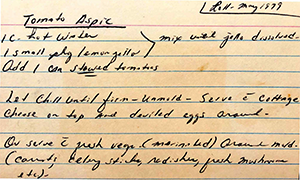 Tomato Aspic
May 1979
1 C. hot water
1 small pkg lemon jello
mix until jello dissolved.
Add 1 can stewed tomatoes
Let chill until firm - Unmold - Serve c̄ cottage
cheese on top and deviled eggs around.
Or serve c̄ fresh vege. (marinated) around mold.
(carrots celery sticks, radishes, fresh mushroom
etc).